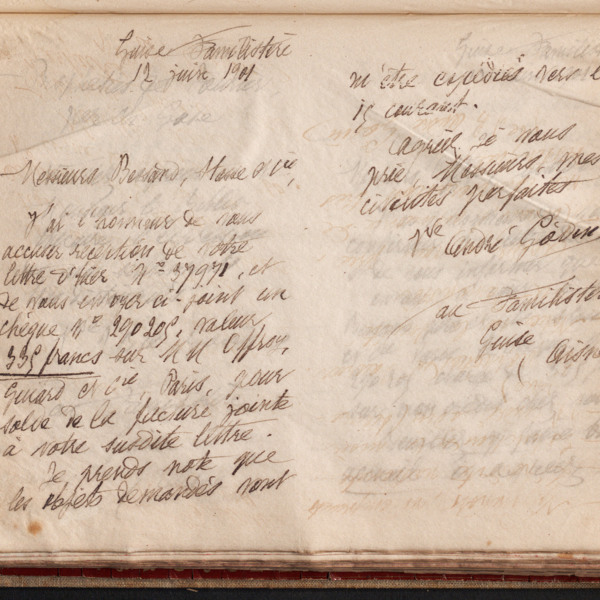 Guise Familistère
12 juin 1901
Messieurs Besnard, Maris & Cie,
J'ai l'honneur de vous
accuser réception de votre
lettre d'hier N° 37971, et
de vous envoyer ci-joint un
chèque N° 390205, valeur
335 francs sur MM Offroy,
Guiard et Cie Paris, pour
solde de la facture jointe
à votre susdite lettre.
Je prends note que
les objets demandés vont
m'être expédiés vers l
15 courant.
Agréez, je vous
prie Messieurs, mes
civilités parfaites
Vve André Godin
au Familistère
Guise
(Aisne